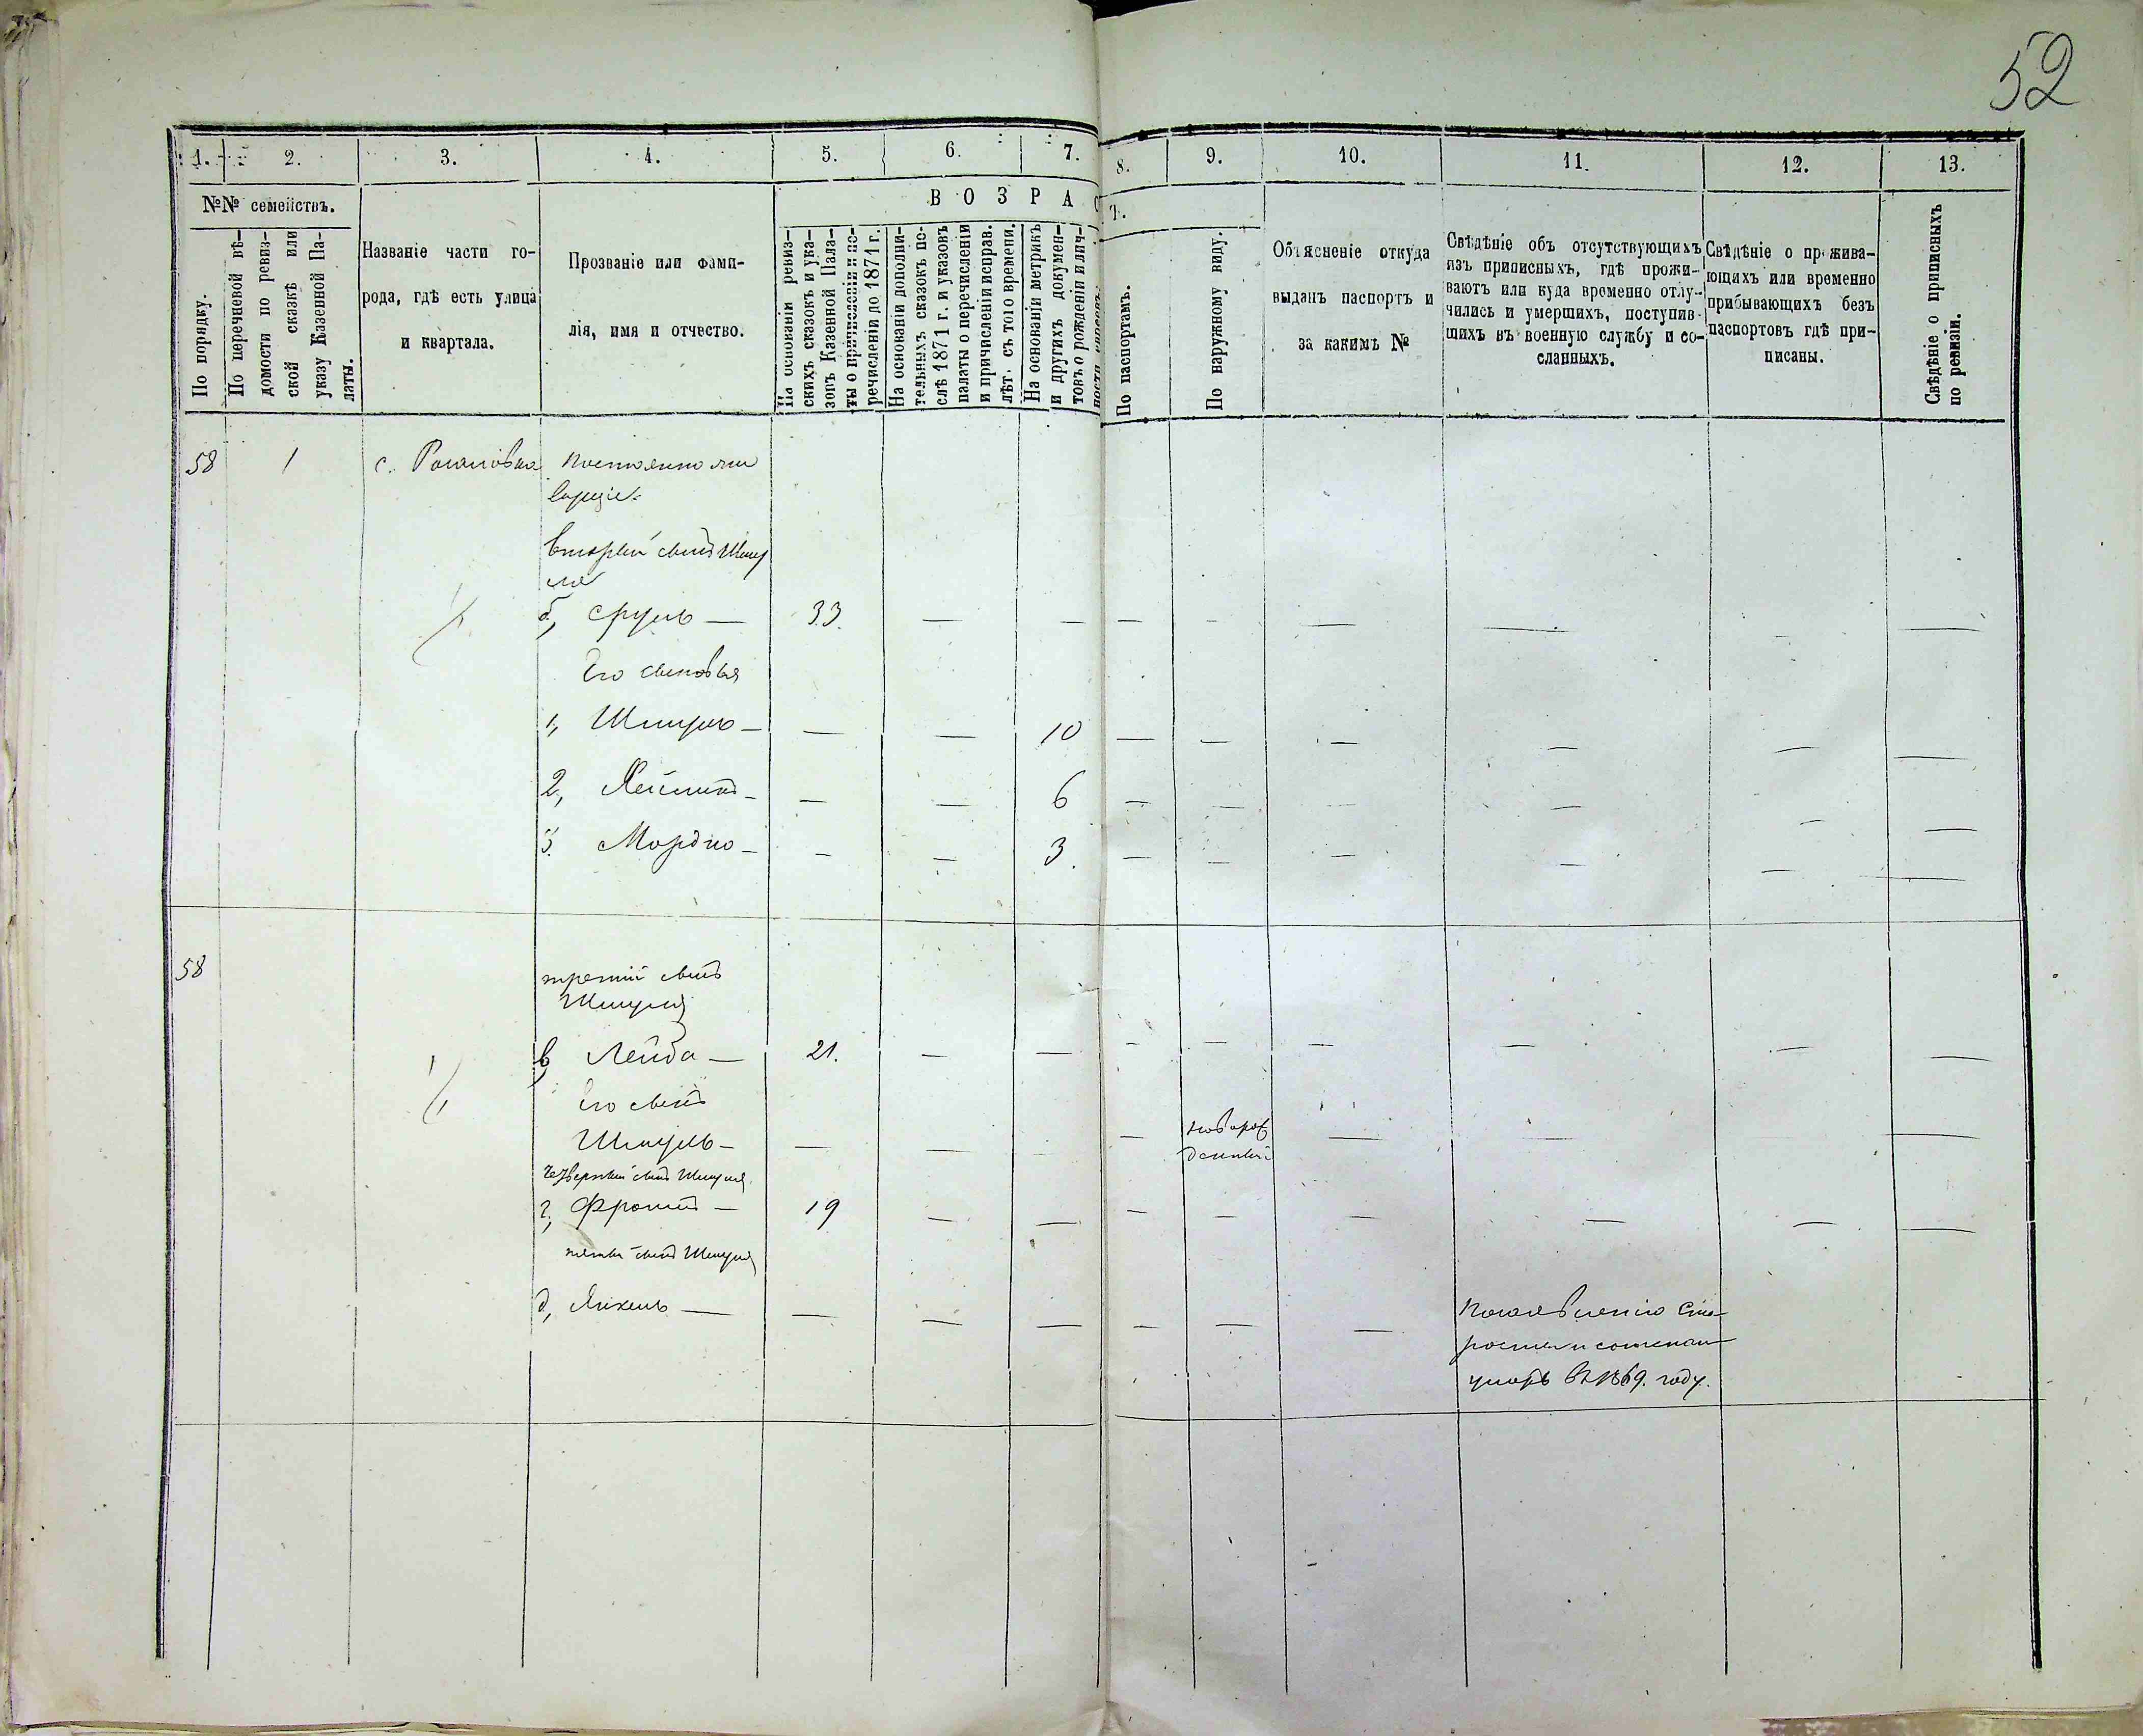 52
1. 2. 3. 4. 5. 6. 7. 8. 9. 10. 11. 12. 13.
№№ семействъ.
По порядку.
По перечневой вѣ-
домости по ревиз-
ской сказкѣ или
указу Казенной Па-
латы.
Названіе части го-
рода, гдѣ есть улица
и квартала.
Прозваніе или фами-
лія, имя и отчество.
ВОЗРАС
Т.
На основаніи ревиз-
скихъ сказокъ и ука-
зовъ Казенной Пала-
ты о причисленіи и пе-
речисленіи до 1871 г.
На основаніи дополни-
тельныхъ сказокъ по-
слѣ 1871 г. и указовъ
палаты о перечисленіи
и причисленіи исправ.
лѣт. съ того времени.
На основаніи метрикъ
и другихъ докумен-
товъ о рожденіи и лич-
По паспортамъ.
По наружному виду.
Объясненіе откуда
выданъ паспортъ и
за какимъ №
Свѣдѣніе объ отсутствующихъ
изъ приписныхъ, гдѣ прожи-
ваютъ или куда временно отлу-
чились и умершихъ, поступив-
шихъ въ военную службу и со-
сланныхъ.
Свѣдѣніе о прожива-
ющихъ или временно
прибывающихъ безъ
паспортовъ гдѣ при-
писаны.
Свѣдѣніе о приписныхъ
по ревизіи.
58 1 с. Постоянно жи
вущіе
второй сынъ Шму
ля
б, Сруль — 33. — — — — — — — —
Его сыновья
1, Шмуль — — — 10 — — — — — —
2, — — 6 — — — — —
3. Мордко — — — 3. — — — — — —
58
третій сынъ
Шмуля
в, Лейба — 21. — — — — — — — —
Его сынъ
Шмуль — — — — — новорож
денный — —
четвертый сынъ Шмуля
г, Фроимъ — 19 — — — — — — — —
пятый сынъ Шмуля
д, Янкель — — — — — — —
По заявленію Ста
росты и
умеръ въ 1869. году.